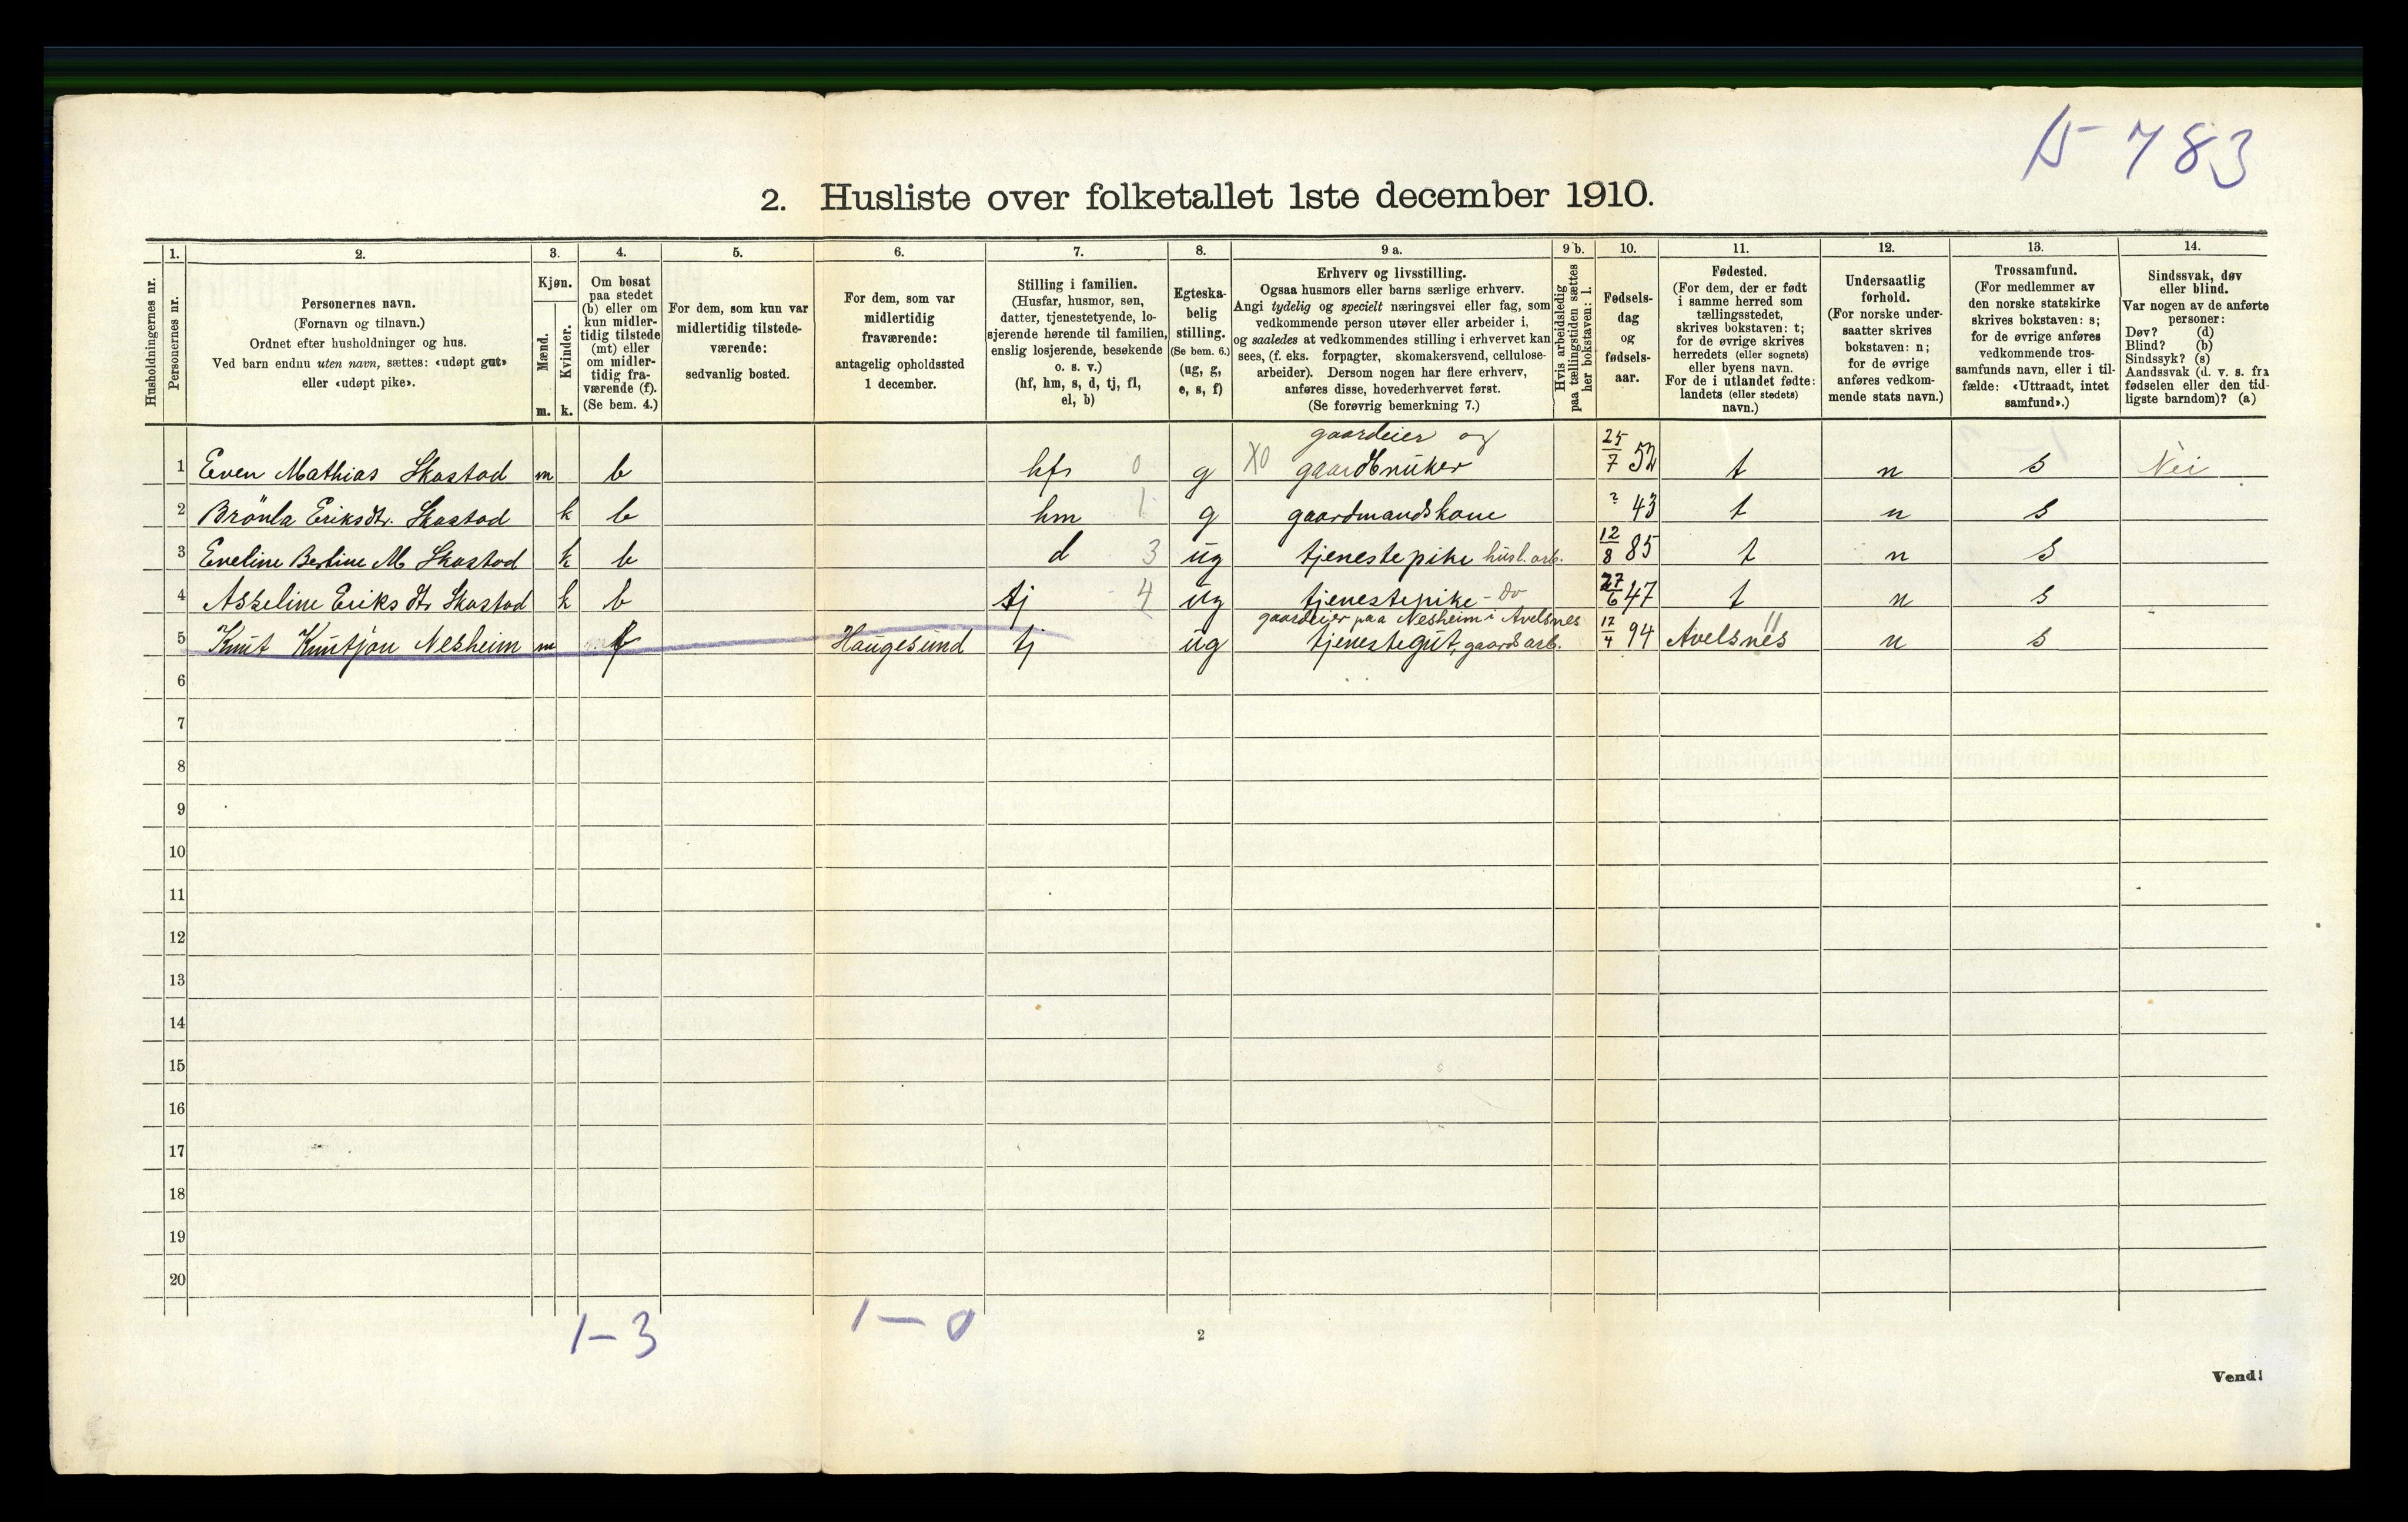 15 783
2. Husliste over folketallet 1ste december 1910.
Husholdningernes nr.
1. Personernes nr.
2. Personernes navn.
(Fornavn og tilnavn.)
Ordnet efter husholdninger og hus.
Ved barn endnu uten navn, sættes: «udøpt gut»
eller «udøpt pike».
3. Kjøn.
Mænd. m.
Kvinder. k.
4. Om bosat
paa stedet
(b) eller om
kun midler-
tidig tilstede
(mt) eller
om midler-
tidig fra-
værende (f).
(Se bem. 4.)
5. For dem, som kun var
midlertidig tilstede-
værende:
sedvanlig bosted.
6. For dem, som var
midlertidig
fraværende:
antagelig opholdssted
1 december.
7. Stilling i familien.
(Husfar, husmor, søn,
datter, tjenestetyende, lo-
sjerende hørende til familien,
enslig losjerende, besøkende
o. s. v.)
(hf, hm, s, d, tj, fl,
el, b)
8. Egteska-
belig
stilling.
(Se bem. 6.)
(ug, g,
e, s, f)
9 a. Erhverv og livsstilling.
Ogsaa husmors eller barns særlige erhverv.
Angi tydelig og specielt næringsvei eller fag, som
vedkommende person utøver eller arbeider i,
og saaledes at vedkommendes stilling i erhvervet kan
sees, (f. eks. forpagter, skomakersvend, cellulose-
arbeider). Dersom nogen har flere erhverv,
anføres disse, hovederhvervet først.
(Se forøvrig bemerkning 7.)
9 b. Hvis arbeidsledig
paa tællingstiden sættes
her bokstaven: l.
10. Fødsels-
dag
og
fødsels-
aar.
11. Fødested.
(For dem, der er født
i samme herred som
tællingsstedet,
skrives bokstaven: t;
for de øvrige skrives
herredets (eller sognets)
eller byens navn.
For de i utlandet fødte:
landets (eller stedets)
navn.)
12. Undersaatlig
forhold.
(For norske under-
saatter skrives
bokstaven: n;
for de øvrige
anføres vedkom-
mende stats navn.)
13. Trossamfund.
(For medlemmer av
den norske statskirke
skrives bokstaven: s;
for de øvrige anføres
vedkommende tros-
samfunds navn, eller i til-
fælde: «Uttraadt, intet
samfund».)
14. Sindssvak, døv
eller blind.
Var nogen av de anførte
personer:
Døv? (d)
Blind? (b)
Sindssyk? (s)
Aandssvak (d. v. s. fra
fødselen eller den tid-
ligste barndom)? (a)
gaardeier og
1 Even Mathias Skastad m b hfr 0 g X0 gaardbruker 25/7 52 t n s Nei
2 Brønla Eriksdtr. Skastad k b hm 1 g gaardmandskone ? 43 t n s
3 Eveline Bertine M Skastad k b d 3 ug tjenestepike husl. arb. 12/8 85 t n s
4 Asseline Eriksdtr Skastad k b tj 4 ug tjenestepike - Do 27/6 47 t n s
gaardeier paa Nesheim i Avelsnes
5 Knut Knutjon Nesheim m f Haugesund tj ug tjenestegut, gaardsarb. 12/4 94 Avelsnes n s
6
7
8
9
10
11
12
13
14
15
16
17
18
19
20
1-3 1-0
2
Vend!